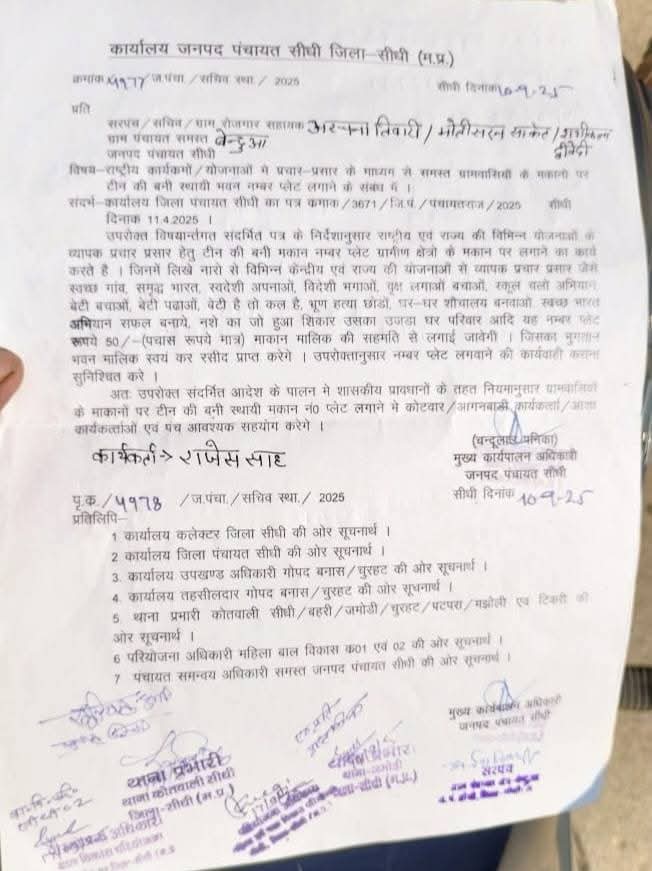 कार्यालय जनपद पंचायत सीधी जिला–सीधी (म.प्र.)
क्रमांक 4977/ज.पंचा./सचिव स्था./ 2025 सीधी दिनांक 10-9-25
प्रति
सरपंच/सचिव/ग्राम रोजगार सहायक अर्चना तिवारी/मोतीसरन साकेत/
ग्राम पंचायत समस्त द्विवेदी
जनपद पंचायत सीधी
विषय–राष्ट्रीय कार्यकमों/योजनाओं मे प्रचार-प्रसार के माध्यम से समस्त ग्रामवासियों के मकानो पर
टीन की बनी स्थायी भवन नम्बर प्लेट लगाने के संबंध में ।
संदर्भ–कार्यालय जिला पंचायत सीधी का पत्र कमाक/3671/जि.पं./पंचायतराज/2025 सीधी
दिनाक 11.4.2025 ।
उपरोक्त विषयार्न्तगत संदर्भित पत्र के निर्देशानुसार राष्ट्रीय एवं राज्य की विभिन्न योजनाओं के
व्यापक प्रचार प्रसार हेतु टीन की बनी मकान नम्बर प्लेट ग्रामीण क्षेत्रो के मकान पर लगाने का कार्य
करते है । जिनमें लिखे नारो से विभिन्न केन्द्रीय एवं राज्य की योजनाओं से व्यापक प्रचार प्रसार जैसे
स्वच्छ गांव, समृद्ध भारत, स्वदेशी अपनाओं, विदेशी भगाओं, वृक्ष लगाओं बचाओं, स्कूल चलो अभियान,
बेटी बचाओं, बेटी पढाओं, वेटी है तो कल है, भूण हत्या छोडों, घर-घर शौचालय बनवाओ, स्वच्छ भारत
अभियान सफल बनाये, नशे का जो हुआ शिकार उसका उजडा घर परिवार आदि यह नम्बर प्लेट
रूपये 50/–(पचास रूपये मात्र) माकान मालिक की सहमति से लगाई जावेगी । जिसका भुगतान
भवन मालिक स्वयं कर रसीद प्राप्त करेगे । उपरोक्तानुसार नम्बर प्लेट लगवाने की कार्यवाही कराना
सुनिश्चित करे ।
अतः उपरोक्त संदर्भित आदेश के पालन मे शासकीय प्रावधानों के तहत नियमानुसार ग्रामवासियों
के माकानों पर टीन की बनी स्थायी मकान नं0 प्लेट लगाने मे कोटवार/आगनबाडी कार्यकर्त्ता/आशा
कार्यकर्त्ताओं एवं पंच आवश्यक सहयोग करेगे ।
कार्यकर्ता→ राजेस साह
मुख्य कार्यपालन अधिकारी
जनपद पंचायत सीधी
पृ.क./4978 /ज.पंचा./सचिव स्था./ 2025 सीधी दिनांक 10-9-25
प्रतिलिपि–
1 कार्यालय कलेक्टर जिला सीधी की ओर सूचनार्थ ।
2 कार्यालय जिला पंचायत सीधी की ओर सूचनार्थ ।
3. कार्यालय उपखण्ड अधिकारी गोपद बनास/चुरहट की ओर सूचनार्थ ।
4. कार्यालय तहसीलदार गोपद बनास/चुरहट की ओर सूचनार्थ ।
5. थाना प्रभारी कोतवाली सीधी/बहरी/जमोडी/चुरहट/पटपरा/मझोली एवं टिकरी की
ओर सूचनार्थ ।
6 परियोजना अधिकारी महिला बाल विकास क01 एवं 02 की ओर सूचनार्थ ।
7 पंचायत समन्वय अधिकारी समस्त जनपद पंचायत सीधी की ओर सूचनार्थ ।
मुख्य कार्यपालन अधिकारी
जनपद पंचायत सीधी
थाना प्रभारी
थाना कोतवाली सीधी
जिला-सीधी (म.प्र.)
सरपंच